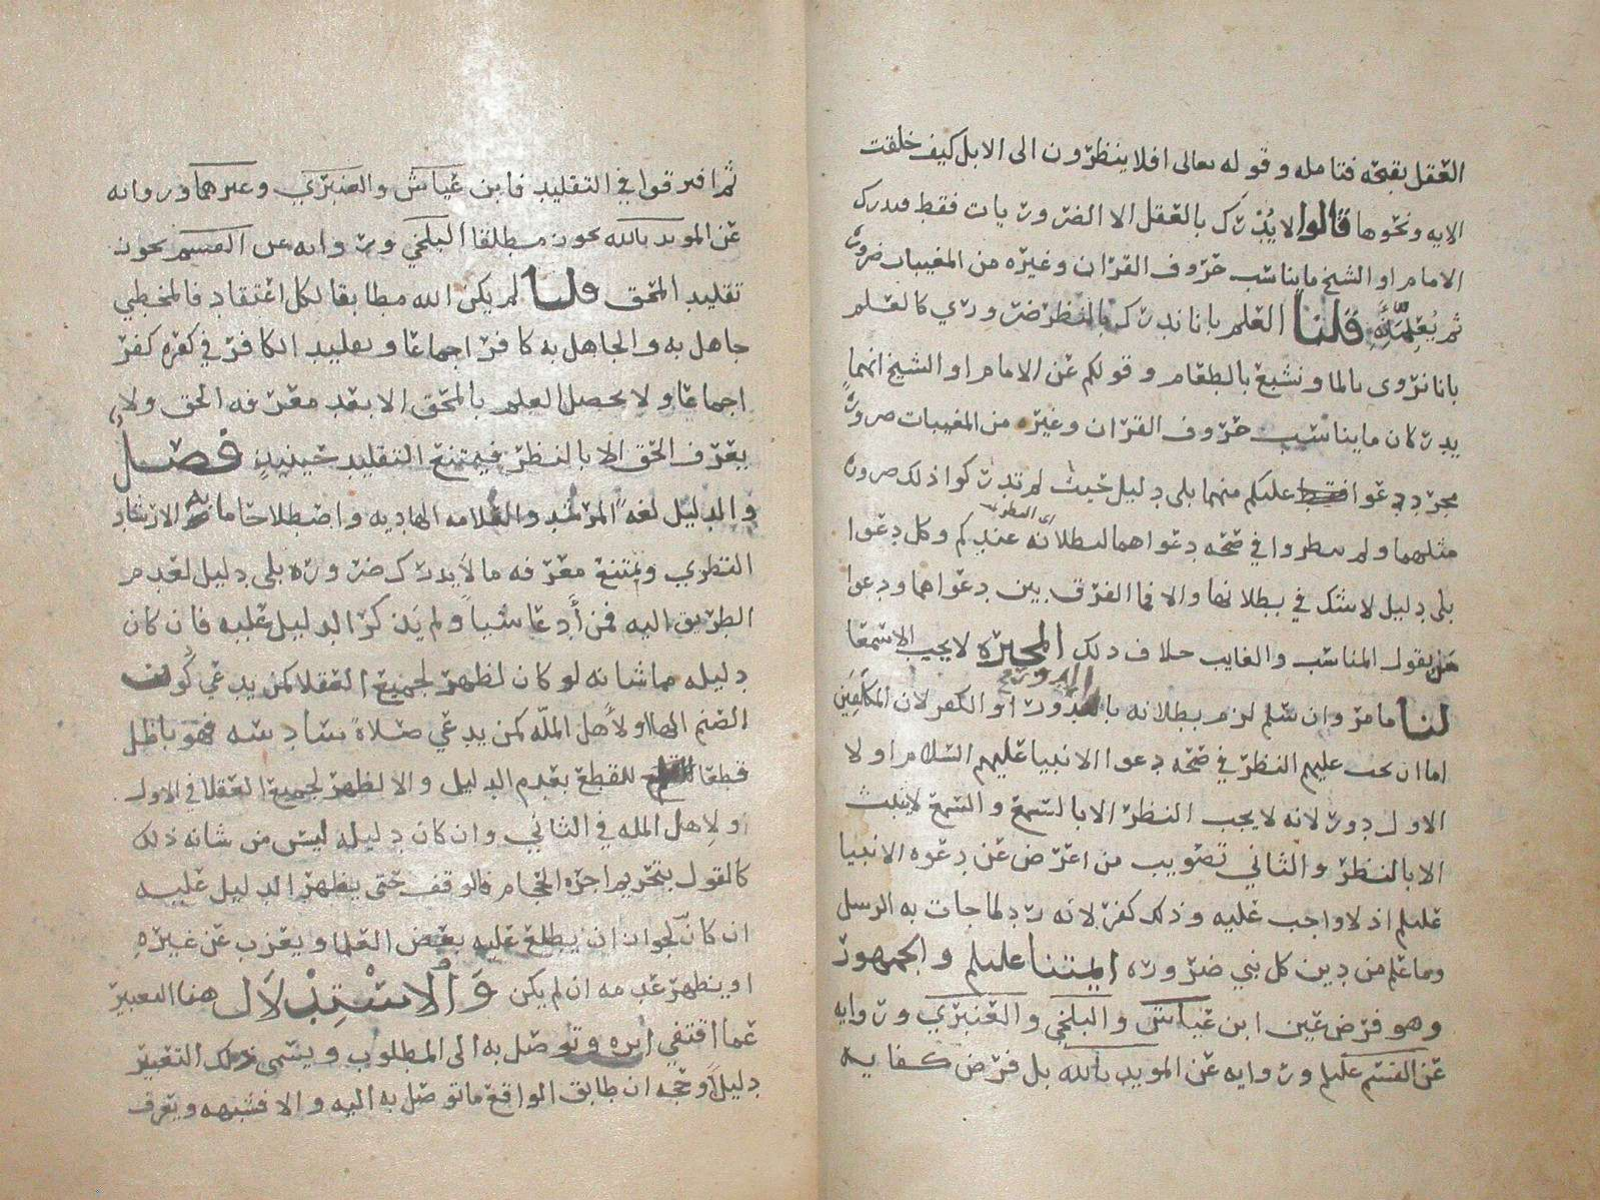 العقل بقبحه فتامله وقوله تعالى افلا ينظرون الى الابل كيف خلقت
الايه ونحوها قالوا لا يدرك بالعقل الا الضروريات فقط فيدرك
الامام او الشيخ ما يناسب حروف القران وغيره من المغيبات ضرورة
ثم يعلمانه قلنا العلم بانا ندرك بالنظر ضروري كالعلم
بانا نروى بالما ونشبع بالطعام وقولكم عن الامام او الشيخ انهما
يدركان ما يناسب حروف القران وغيره من المغيبات ضرورة
مجرد دعوا عليكم منهما بلى دليل حيث لم تدركوا ذلك ضرورة
مثلهما ولم تنظروا في صحه دعواهما لبطلانه عندكم وكل دعوا
اي النظر
بلى دليل لا شك في بطلانها والا فما الفرق بين دعواهما ودعوا
من يقول المناسب والغايب خلاف ذلك المجبره لا يجب الا سمعا
لنا ما مر وان سلم لزم بطلانه بالدور او الكفر لان المكلفين
الدور
اما ان يجب عليهم النظر في صحه دعوا الانبيا عليهم السلام او لا
الاول دور لانه لا يجب النظر الا بالسمع والسمع لا يثبت
الا بالنظر والثاني تصويب من اعرض عن دعوه الانبيا
عليلم اذ لا واجب عليه وذلك كفر لانه رد لما جات به الرسل
وما علم من دين كل نبي ضرورة ايمتنا عليلم والجمهور
وهو فرض عين ابن عياش والبلخي والعنبري وروايه
عن القسم عليلم وروايه عن المويد بالله بل فرض كفايه
ثم افترقوا في التقليد فابن عياش والعنبري وغيرهما وروايه
عن المويد بالله يجوز مطلقا البلخي وروايه عن القسم يجوز
تقليد المحق قلنا لم يكن الله مطابقا لكل اعتقاد فالمخطي
جاهل به والجاهل به كافر اجماعا وتقليد الكافر في كفره كفر
اجماعا ولا يحصل العلم بالمحق الا بعد معرفه الحق ولا
يعرف الحق الا بالنظر فيمتنع التقليد حينيذ فصل
والدليل لغه المرشد والعلامه الهاديه واصطلاحا ما به الارشاد
النظري ويمتنع معرفه ما لا يدرك ضروره بلى دليل لعدم
الطريق اليه فمن ادعا شيا ولم يذكر الدليل عليه فان كان
دليله مما شانه لو كان لظهر لجميع العقلا كمن يدعي كون
الصنم الها او لاهل المله كمن يدعي صلاة سادسه فهو باطل
قطعا للقطع بعدم الدليل والا لظهر لجميع العقلا في الاول
او لاهل المله في الثاني وان كان دليله ليس من شانه ذلك
كالقول بتحريم اجره الحجام فالوقف حتى يظهر الدليل عليه
ان كان لجواز ان يطلع عليه بعض العلما ويعزب عن غيره
او يظهر عدمه ان لم يكن والاستدلال هنا التعبير
عما اقتفي اثره وتوصل به الى المطلوب ويسمى ذلك التعبير
دليلا وحجه ان طابق الواقع ما توصل به اليه والا فشبهه ويعرف